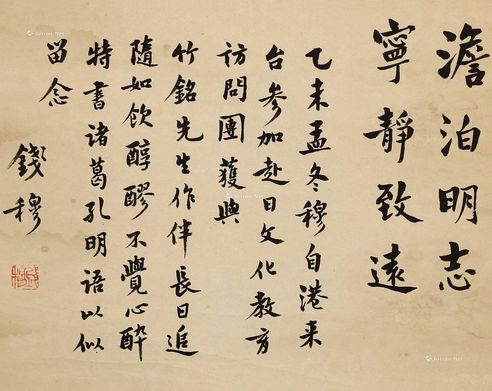 澹泊明志
寧靜致遠
乙未孟冬穆自港来
台参加赴日文化教育
访問團獲與
竹銘先生作伴長日追
隨如飲醇醪不覺心醉
特書诸葛孔明语以似
留念
錢穆